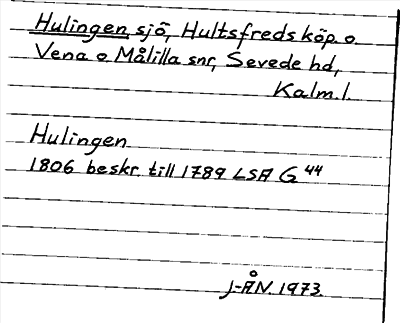 Hulingen, sjö, Hultsfreds köp. o.
Vena o Målilla snr, Sevede hd,
Kalm. l.
Hulingen
1806 beskr. till 1789 LSA G 44
J-ÅN. 1973